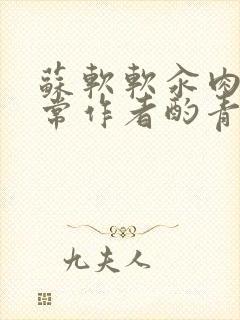 蘇軟軟汆肉
常作者酌青
九夫人